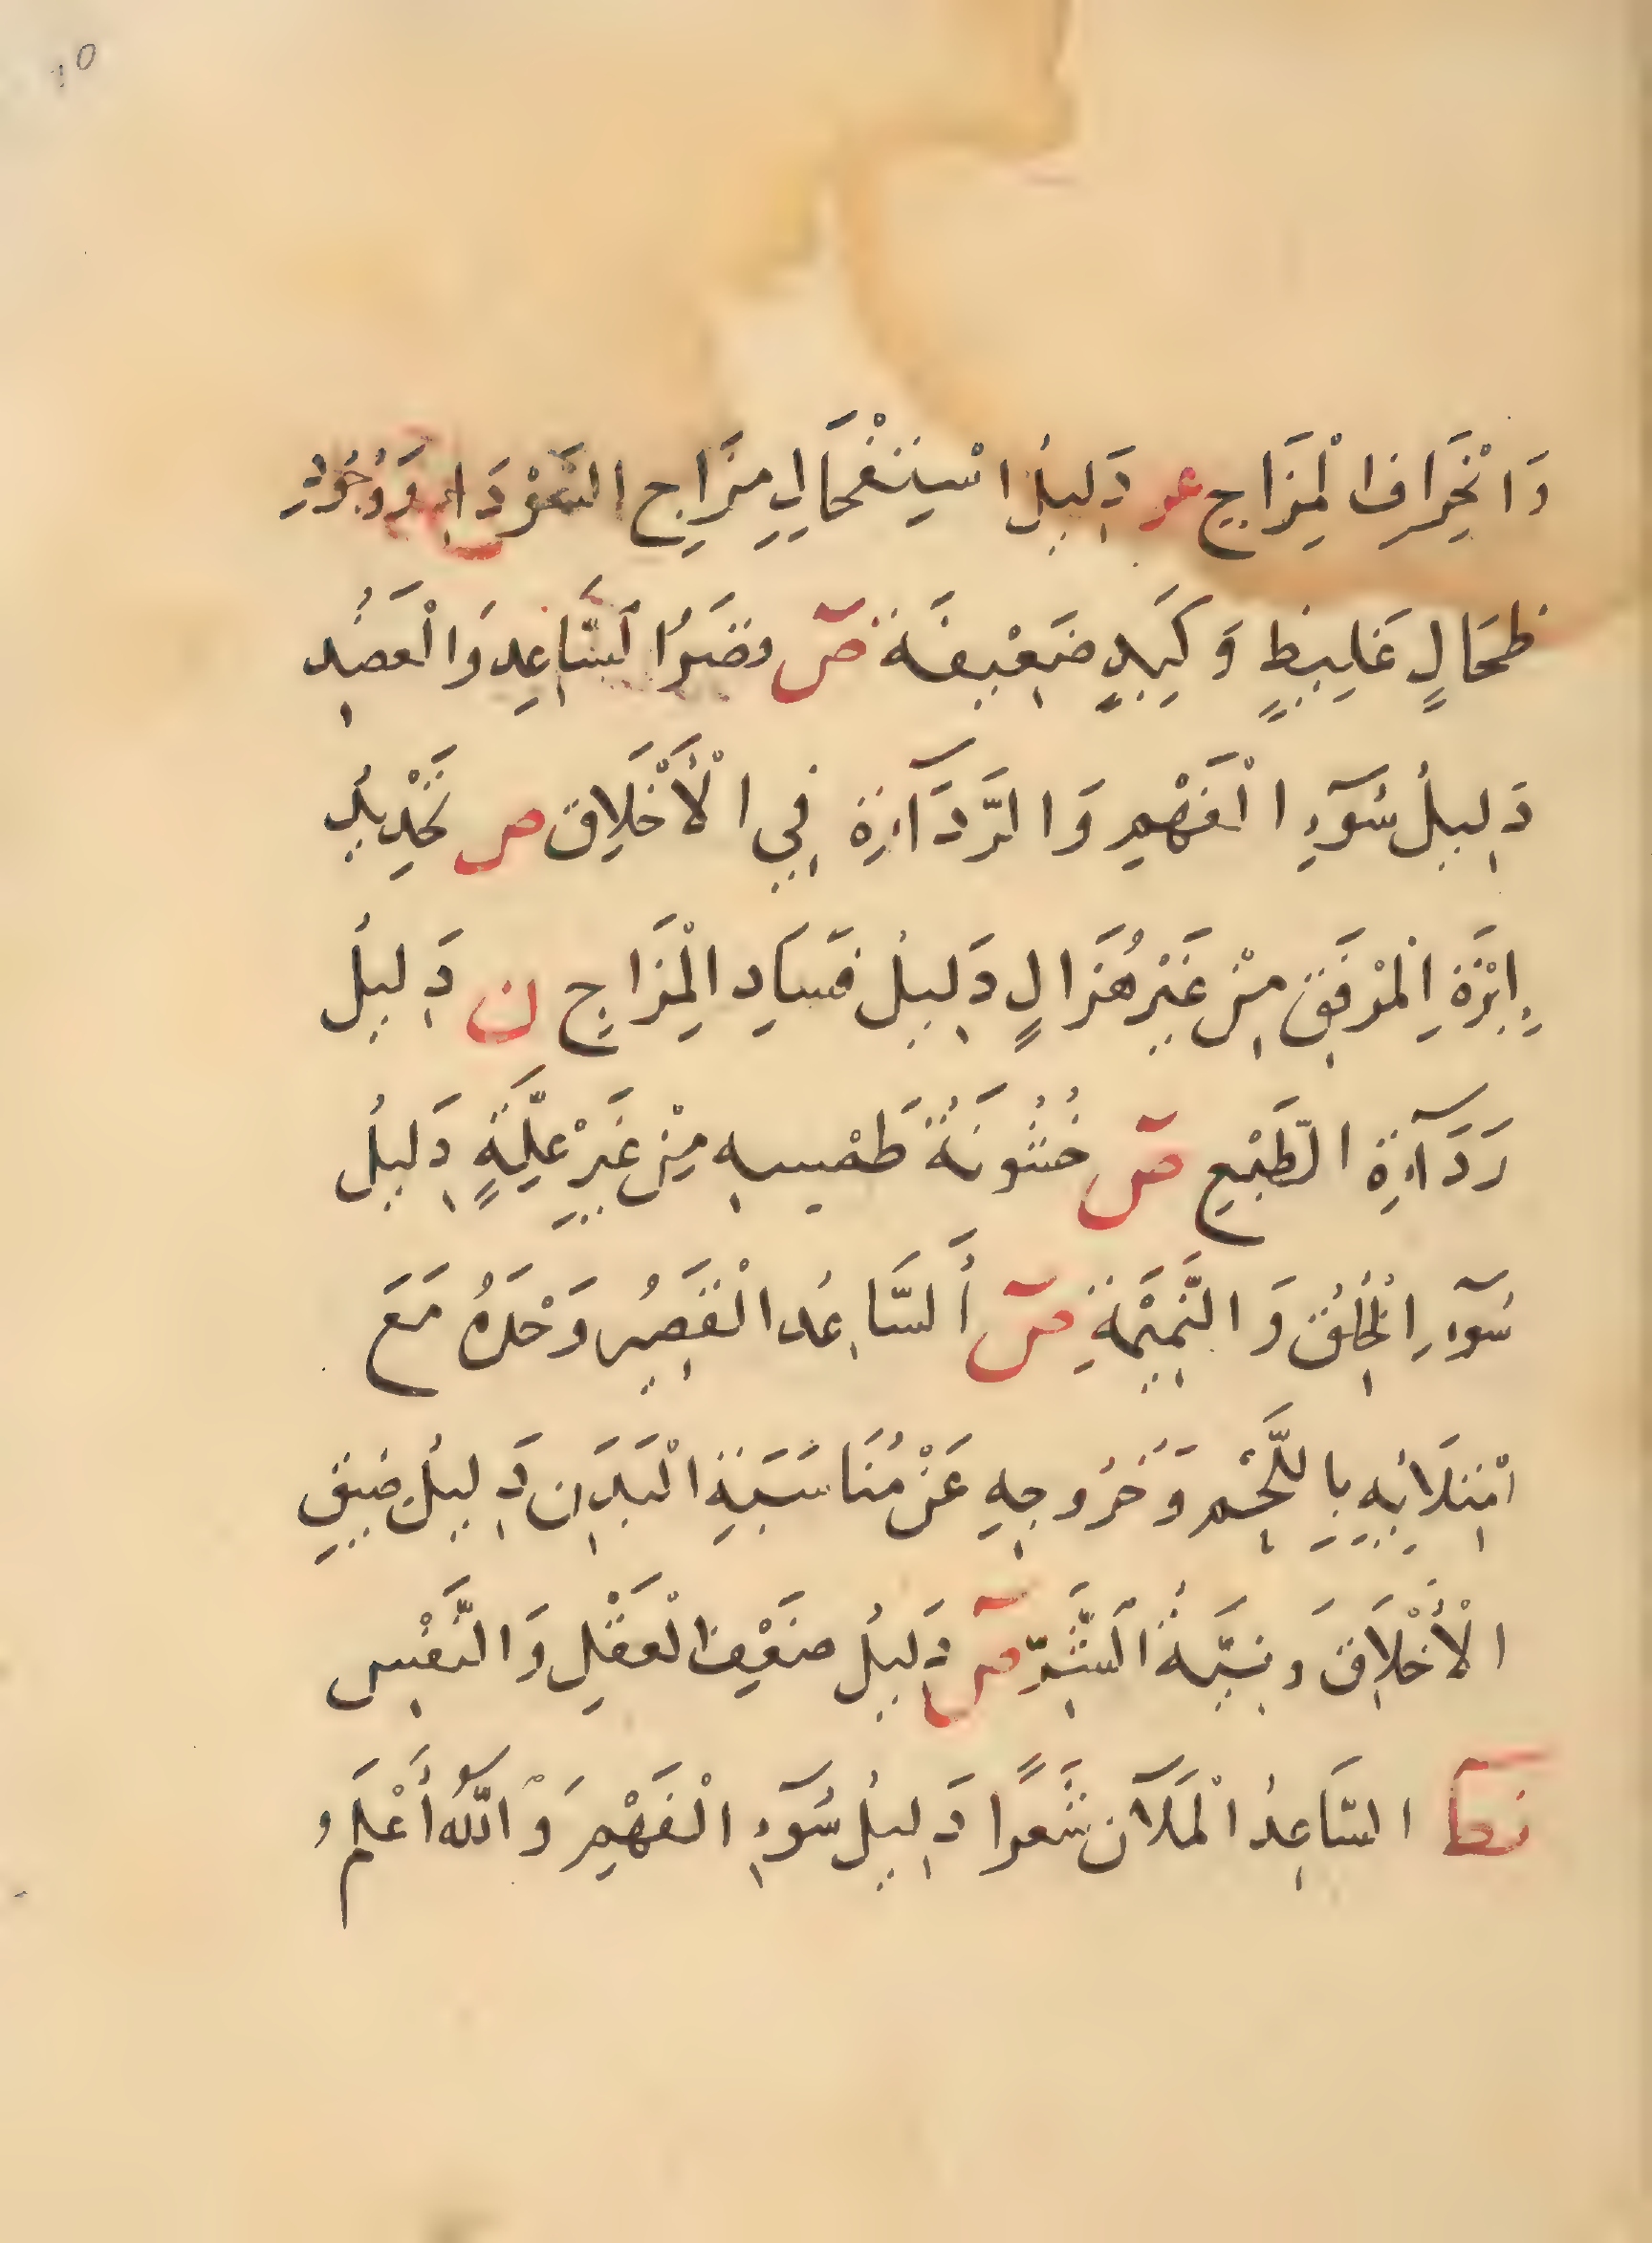 ١٥
وَانْحِرَافِ الْمِزَاجِ عو دَلِيلُ اسْتِفْحَالِ مِزَاجِ السَّوْدَاءِ وَوُجُودِ
طحَالٍ غَلِيظٍ وَكَبِدٍ ضَعِيفَة صٓ قِصَرُ السَّاعِدِ وَالْعَضُدِ
دَلِيلُ سُوٓءِ الْفَهْمِ وَالرَّدَآءَةِ فِي الْأَخْلَاقِ ص تَحْدِيدُ
إِبْرَةِ الْمَرْفَقِ مِنْ غَيْرِ هُزَالٍ دَلِيلُ فَسَادِ الْمِزَاجِ ن دَلِيلُ
رَدَآءَةِ الطَّبْعِ صٓ خُشُونَةُ مِنْ غَيْرِ عِلَّةٍ دَلِيلُ
سُوٓءِ الْخُلُقِ وَالنَّمِيمَةِ صٓ أَلسَّاعِدُ الْقَصِيرُ وَحْدَهُ مَعَ
امْتِلَائِهِ بِاللَّحْمِ وَخُرُوجِهِ عَنْ مُنَاسَبَةِ الْبَدَنِ دَلِيلُ ضِيقِ
الْأَخْلَاقِ وَنِيَّةُ الشَّرِّ صٓ دَلِيلُ ضَعْفِ الْعَقْلِ وَالنَّفْسِ
السَّاعِدُ الْمَلَآن شَعَرًا دَلِيلُ سُوٓءِ الْفَهْمِ وَاللّٰهُ أَعْلَمُ